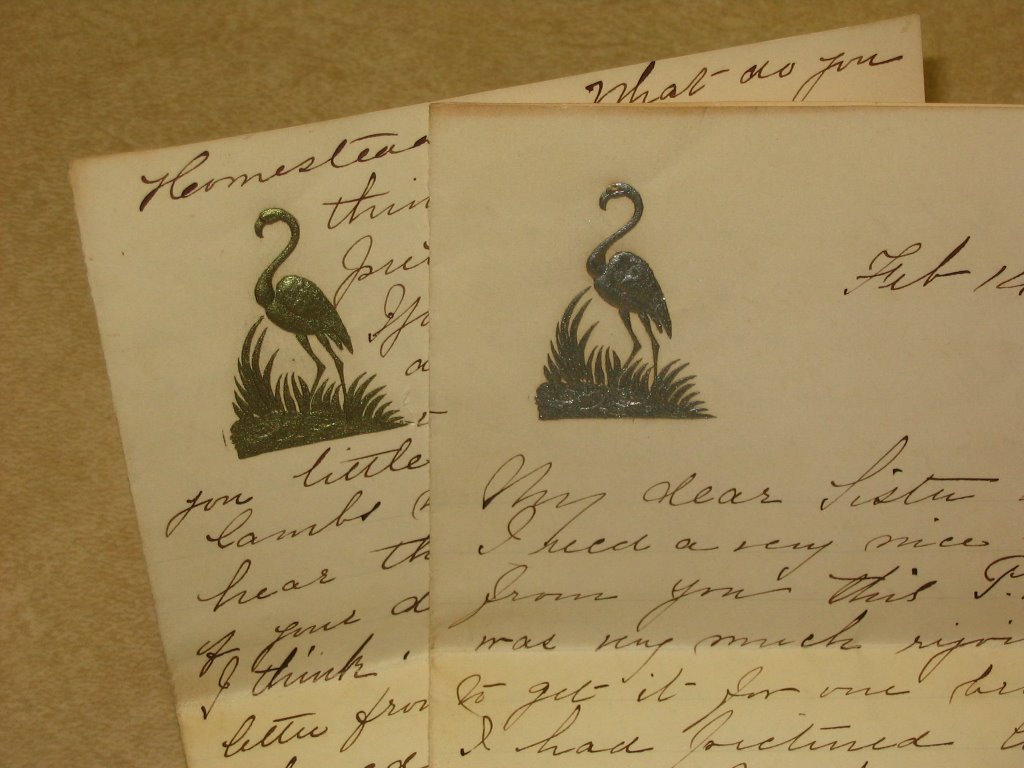 What do you
Homestead
thin
pri
If
a
you little
lambs
hear th
of your d
I think
letter from
Feb 14
My dear Sister
I recd a very nice
from you this P.
was very much rejoi
to get it for one br
I had pictured